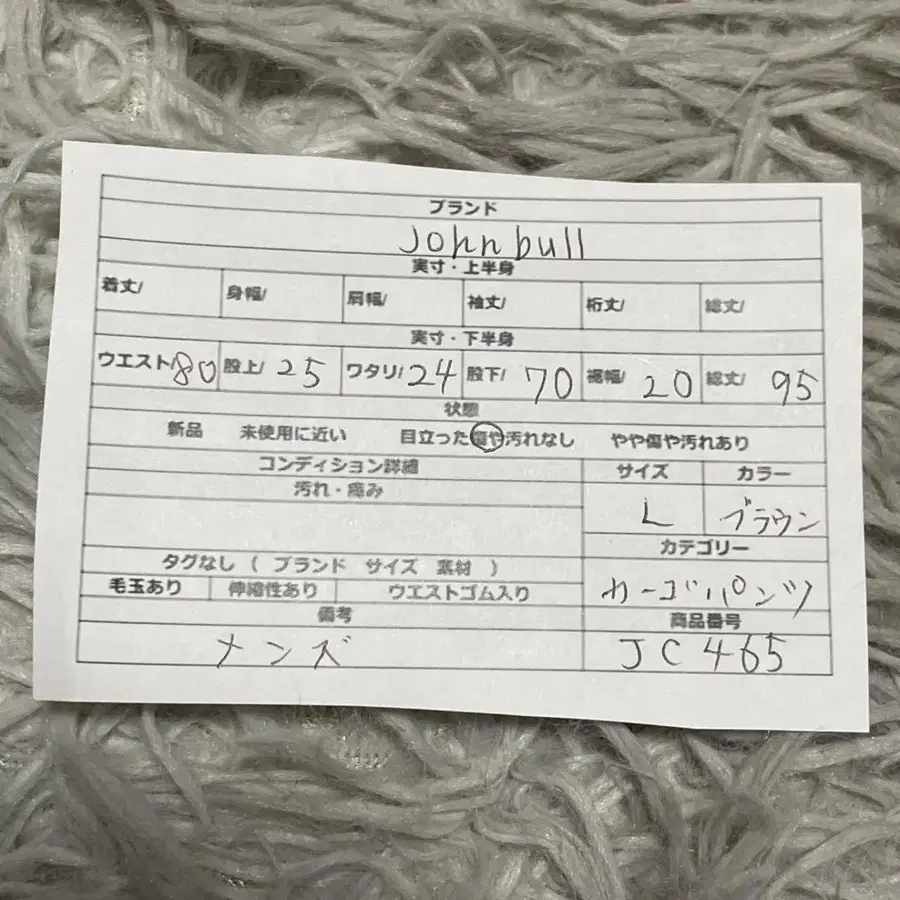 ブランド
Johnbull
実寸・上半身
着丈/ 身幅/ 肩幅/ 袖丈/ 裄丈/ 総丈/
実寸・下半身
ウエスト/80 股上/25 ワタリ/24 股下/70 裾幅/20 総丈/95
状態
新品 未使用に近い 目立った傷や汚れなし やや傷や汚れあり
コンディション詳細 サイズ カラー
汚れ・痛み
L ブラウン
カテゴリー
タグなし ( ブランド サイズ 素材 )
毛玉あり 伸縮性あり ウエストゴム入り カーゴパンツ
備考 商品番号
メンズ JC465